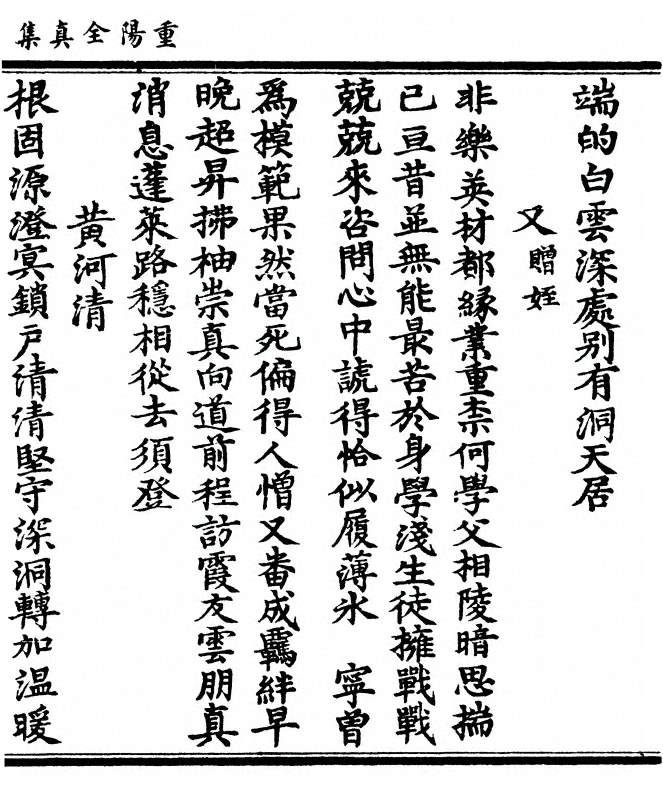 重陽全真集
端的白雲深處別有洞天居
又贈姪
非樂英材都緣業重柰何學父相陵暗思揣
已亘昔並無能最苦於身學淺生徒擁戰戰
兢兢來咨問心中諕得恰似履薄氷　寧曾
為模範果然當死偏得人憎又畨成羈絆早
晚超昇拂袖崇真向道前程訪霞友雲朋真
消息蓬萊路穩相從去須登
黃河清
根固源澄寘鎖戶清清堅守深洞轉加温暖